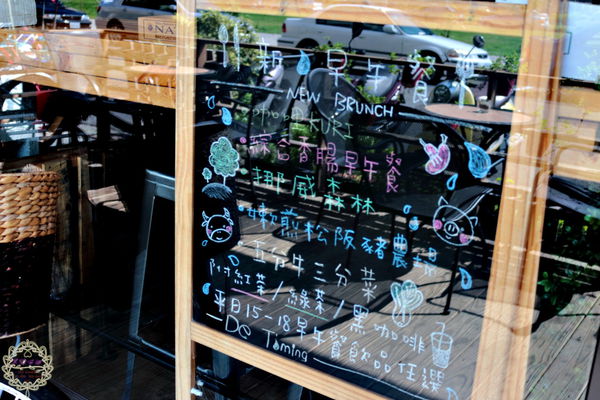 新早午餐
NEW BRUNCH
咖哩KURI
綜合香腸早午餐
挪威森林
嫩煎松阪豬農場
五分牛三分菜
附紅茶/綠茶/黑咖啡
平日15-18早午餐飲品任選
DC Taming
NA